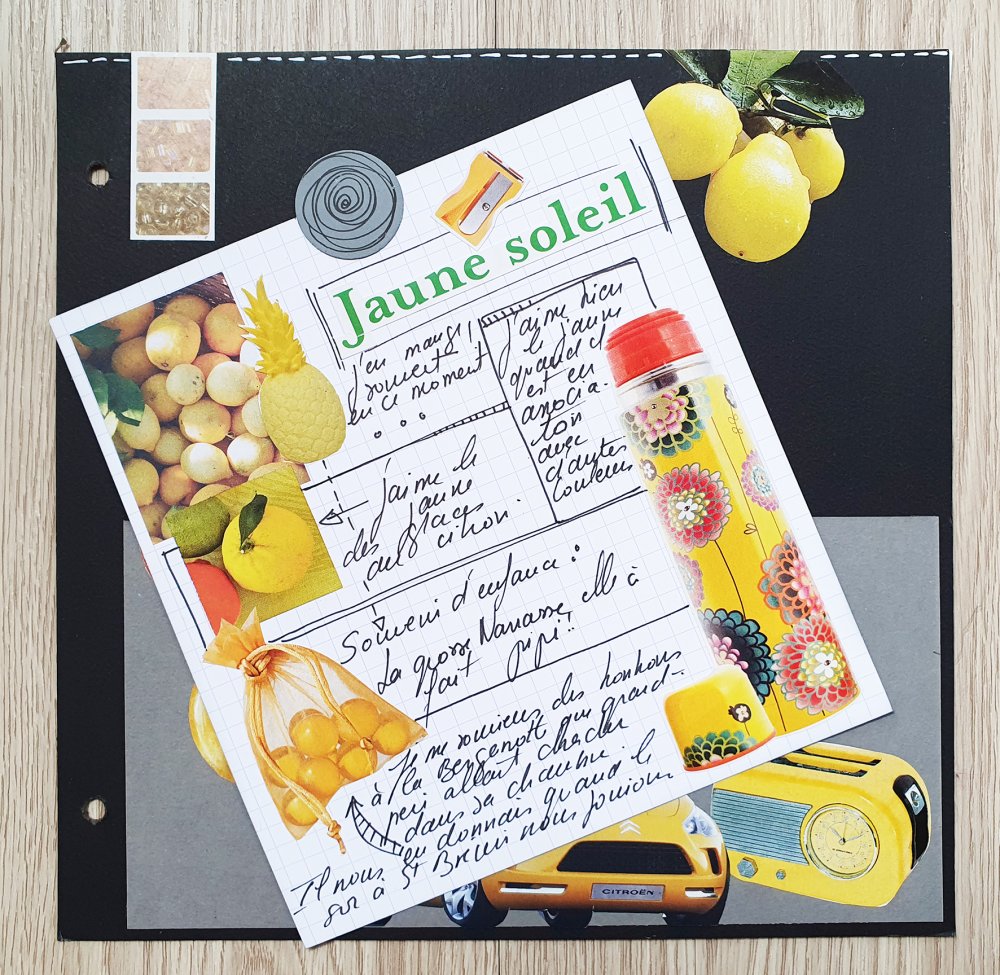 Jaune soleil
j'en mange
souvent
en ce moment
...
j'aime bien
le jaune
quand il
est en
associa-
tion
avec
d'autres
couleurs
j'aime le
jaune
des glaces
au citron.
Souvenir d'enfance :
La grosse Nanasse, elle à
fait pipi !!
Je me souviens des bonbons
à la Bergamotte que grand-
père allait chercher
dans sa chambre. Il
en donnait quand le
Il nous
sur à St Brieuc nous jouions
CITROËN